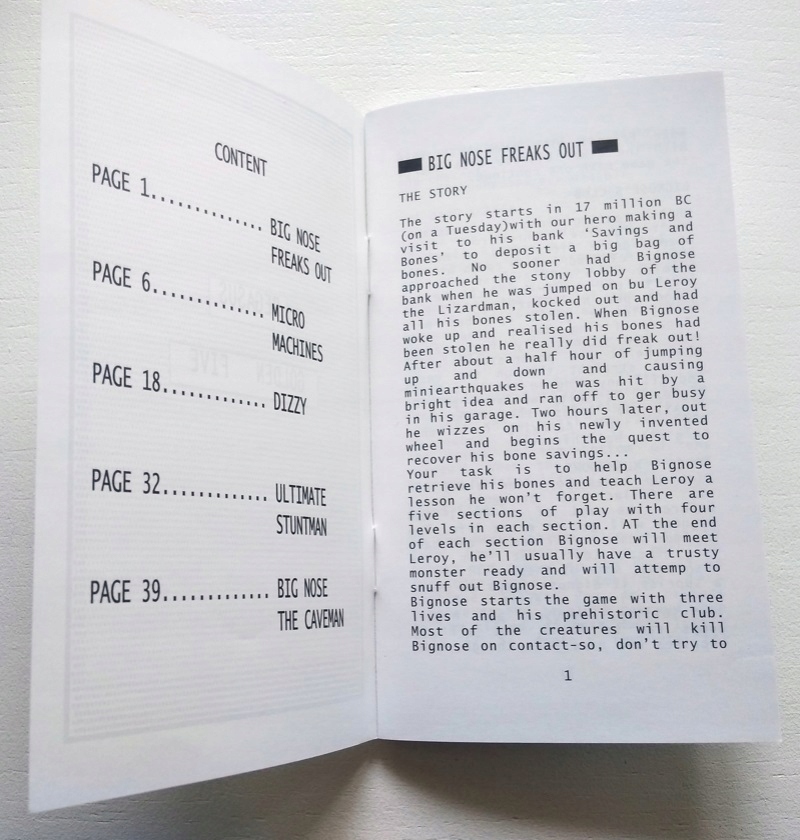 CONTENT
PAGE 1.............. BIG NOSE
FREAKS OUT
PAGE 6.............. MICRO
MACHINES
PAGE 18............. DIZZY
PAGE 32............. ULTIMATE
STUNTMAN
PAGE 39............. BIG NOSE
THE CAVEMAN
BIG NOSE FREAKS OUT
THE STORY
The story starts in 17 million BC
(on a Tuesday)with our hero making a
visit to his bank ‘Savings and
Bones’ to deposit a big bag of
bones. No sooner had Bignose
approached the stony lobby of the
bank when he was jumped on bu Leroy
the Lizardman, kocked out and had
all his bones stolen. When Bignose
woke up and realised his bones had
been stolen he really did freak out!
After about a half hour of jumping
up and down and causing
miniearthquakes he was hit by a
bright idea and ran off to ger busy
in his garage. Two hours later, out
he wizzes on his newly invented
wheel and begins the quest to
recover his bone savings...
Your task is to help Bignose
retrieve his bones and teach Leroy a
lesson he won’t forget. There are
five sections of play with four
levels in each section. AT the end
of each section Bignose will meet
Leroy, he’ll usually have a trusty
monster ready and will attemp to
snuff out Bignose.
Bignose starts the game with three
lives and his prehistoric club.
Most of the creatures will kill
Bignose on contact-so, don’t try to
1